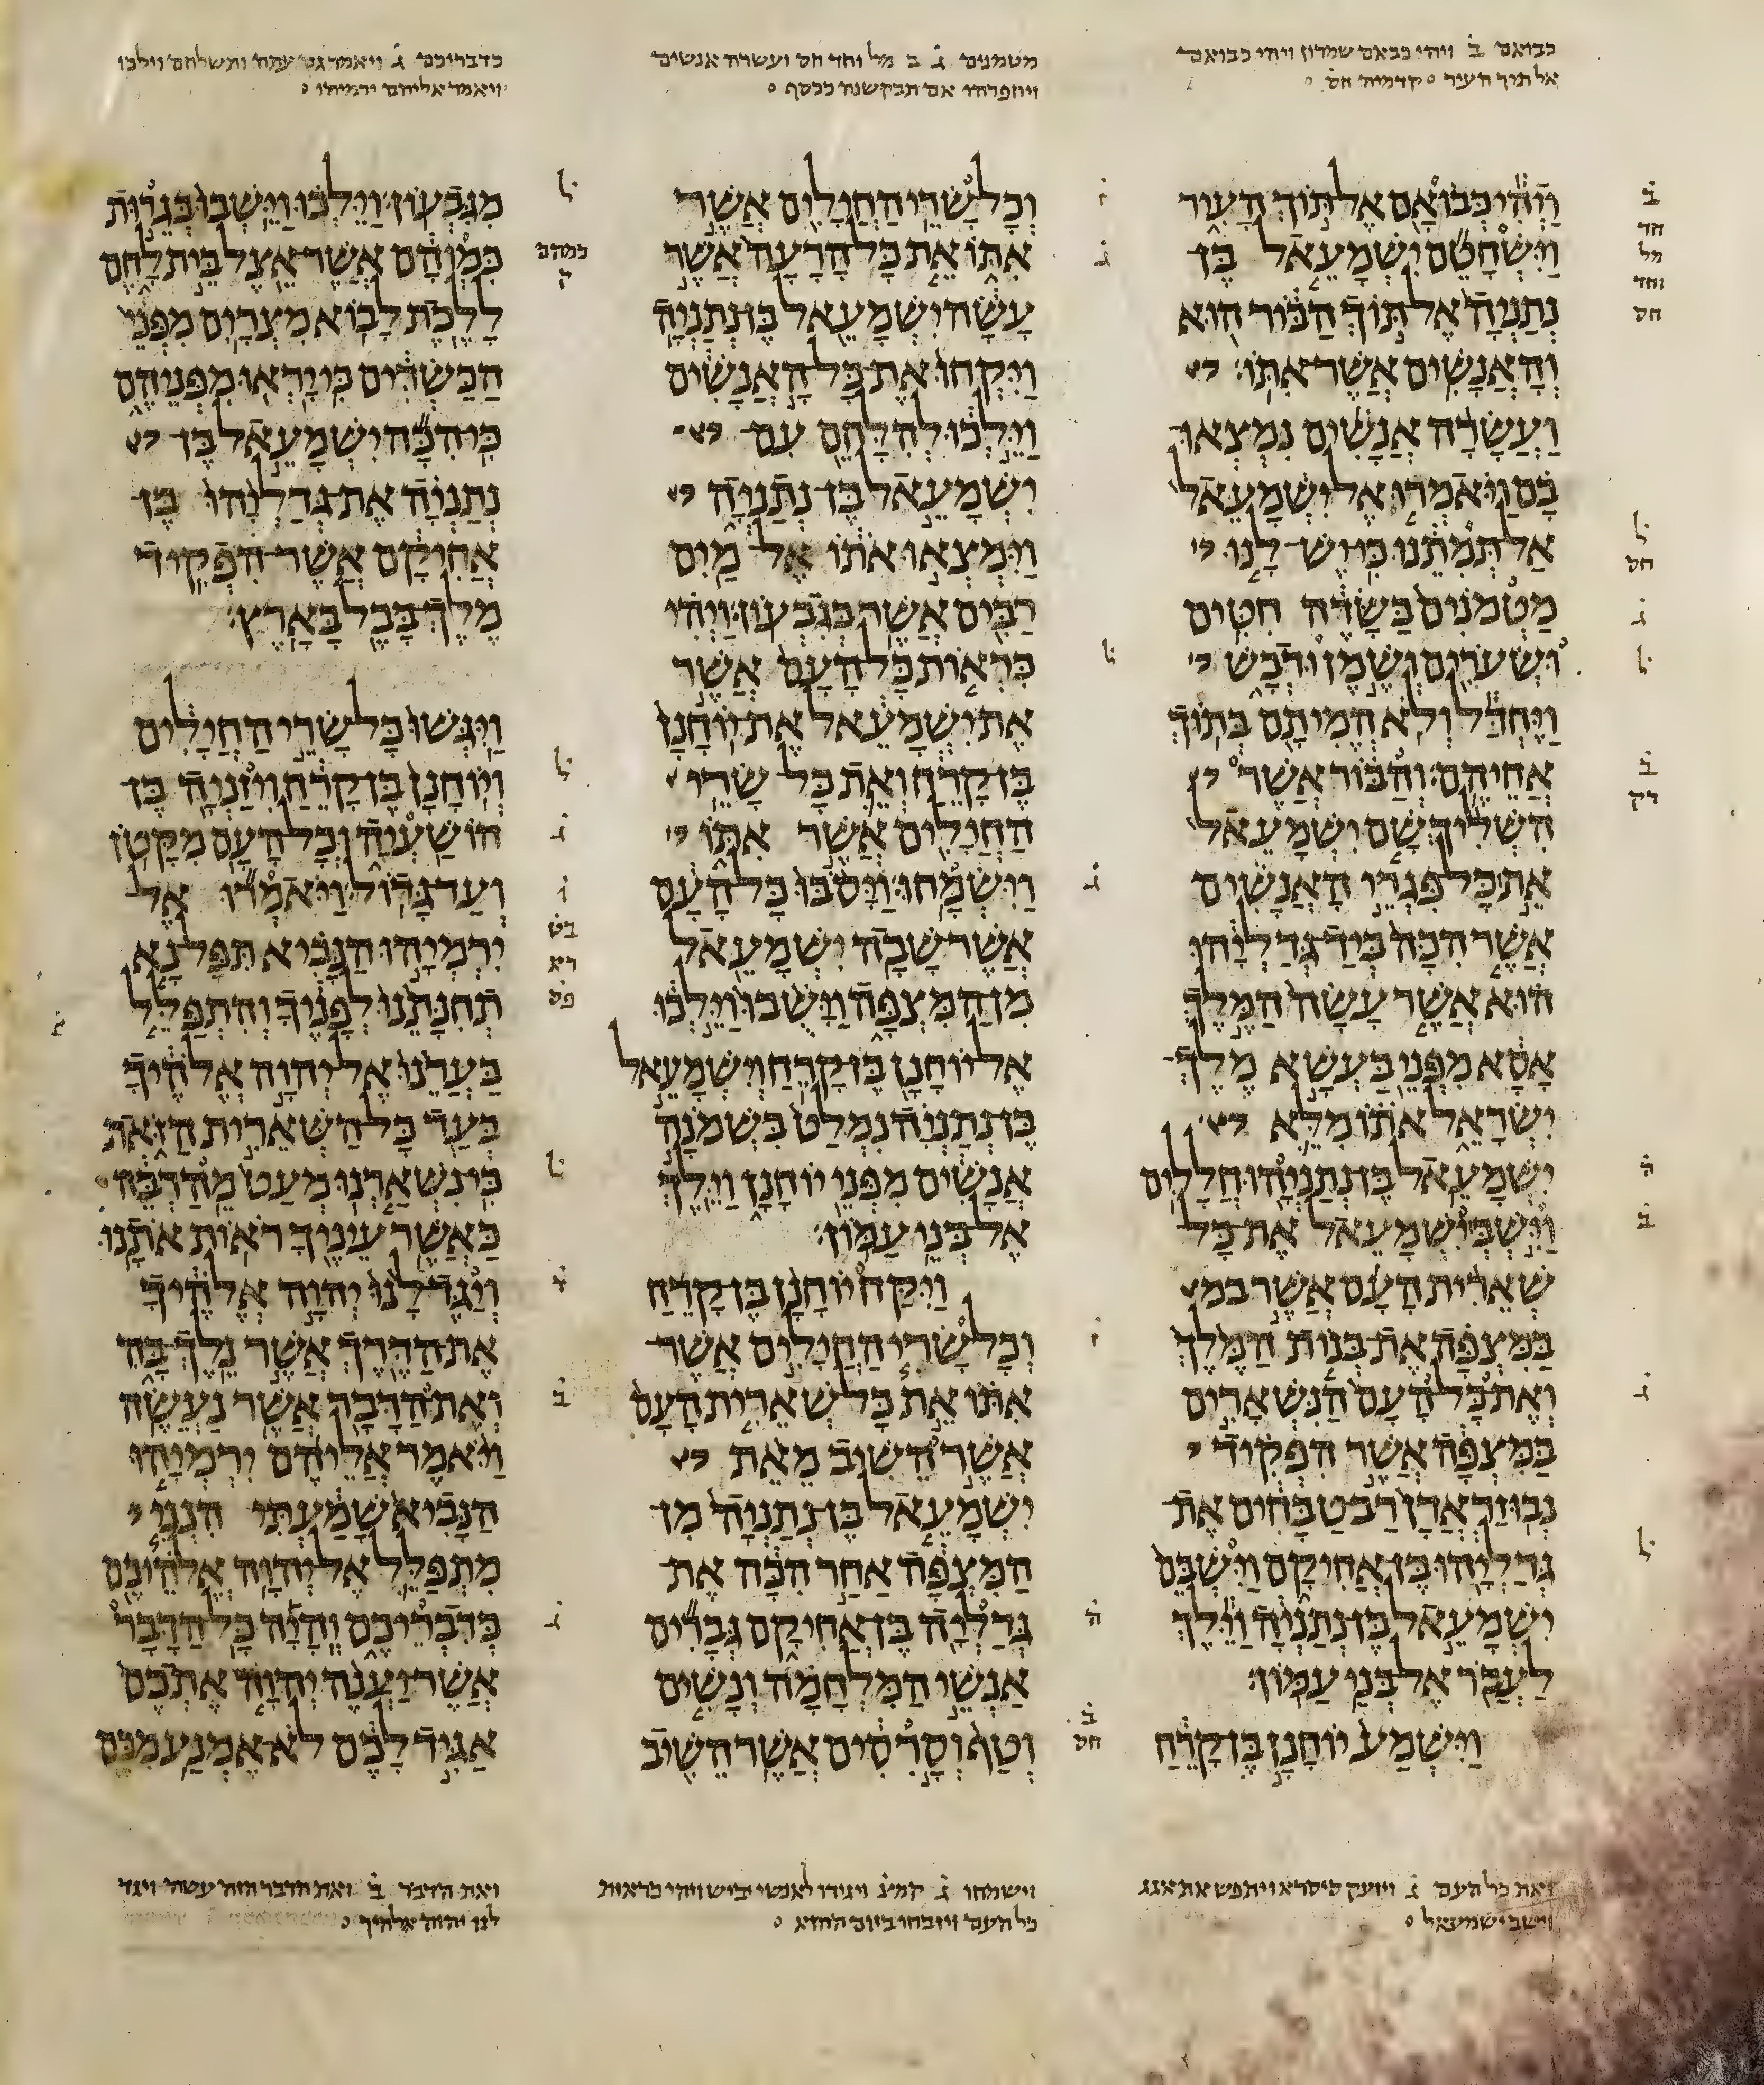 כבואם ב ויהי כבאם שמרון ויהי כבואם
אל תוך העיר קדמיה חס
מטמנים ג ב מל וחד חס ועשרה אנשים
ויחפרהו אם תבקשנה ככסף
כדבריכם ג ויאמר גם עתה ותשלחם וילכו
ויאמר אליהם ירמיהו
ב
חד
מל
וחד
חס
ל
חס
ג
ל
ב
דק
ה
ב
ג
ל
ויהי כבואם אל תוך העיר
וישחטם ישמעאל בן
נתניה אל תוך הבור הוא
והאנשים אשר אתו׃
ועשרה אנשים נמצאו
בם ויאמרו אל ישמעאל
אל תמתנו כי יש לנו
מטמנים בשדה חטים
ושערים ושמן ודבש
ויחדל ולא המיתם בתוך
אחיהם׃ והבור אשר
השליך שם ישמעאל
את כל פגרי האנשים
אשר הכה ביד גדליהו
הוא אשר עשה המלך
אסא מפני בעשא מלך
ישראל אתו מלא
ישמעאל בן נתניהו חללים׃
וישב ישמעאל את כל
שארית העם אשר במ
במצפה את בנות המלך
ואת כל העם הנשארים
במצפה אשר הפקיד
נבוזראדן רב טבחים את
גדליהו בן אחיקם וישבם
ישמעאל בן נתניה וילך
לעבר אל בני עמון׃
וישמע יוחנן בן קרח
ז
ג
ל
ג
ז
ה
ב
חס
וכל שרי החילים אשר
אתו את כל הרעה אשר
עשה ישמעאל בן נתניה׃
ויקחו את כל האנשים
וילכו להלחם עם
ישמעאל בן נתניה
וימצאו אתו אל מים
רבים אשר בגבעון׃ ויהי
כראות כל העם אשר
את ישמעאל את יוחנן
בן קרח ואת כל שרי
החילים אשר אתו
וישמחו׃ ויסבו כל העם
אשר שבה ישמעאל
מן המצפה וישבו וילכו
אל יוחנן בן קרח׃ וישמעאל
בן נתניה נמלט בשמנה
אנשים מפני יוחנן וילך
אל בני עמון׃
ויקח יוחנן בן קרח
וכל שרי החילים אשר
אתו את כל שארית העם
אשר השיב מאת
ישמעאל בן נתניה מן
המצפה אחר הכה את
גדליה בן אחיקם גברים
אנשי המלחמה ונשים
וטף וסרסים אשר השיב
ל
כמהם
ק
ל
ג
ו
בט
רא
פס
ל
ב
ג
מגבעון׃ וילכו וישבו בגרות
כמוהם אשר אצל בית לחם
ללכת לבוא מצרים׃ מפני
הכשדים כי יראו מפניהם
כי הכה ישמעאל בן
נתניה את גדליהו בן
אחיקם אשר הפקיד
מלך בבל בארץ׃
ויגשו כל שרי החילים
ויוחנן בן קרח ויזניה בן
הושעיה וכל העם מקטן
ועד גדול׃ ויאמרו אל
ירמיהו הנביא תפל נא
תחנתנו לפניך והתפלל
בעדנו אל יהוה אלהיך
בעד כל השארית הזאת
כי נשארנו מעט מהרבה
כאשר עיניך ראות אתנו׃
ויגד לנו יהוה אלהיך
את הדרך אשר נלך בה
ואת הדבר אשר נעשה׃
ויאמר אליהם ירמיהו
הנביא שמעתי הנני
מתפלל אל יהוה אלהיכם
כדבריכם והיה כל הדבר
אשר יענה יהוה אתכם
אגיד לכם לא אמנע מכם
ואת כל העם ג ויזעק סיסרא ויתפש את אגג
וישב ישמעאל
וישמחו ג קמצ ויגידו לאנשי יביש ויהי כראות
כל העם ויזבחו ביום ההוא
ואת הדבר ב ואת הדבר הזה עשה ויגד
לנו יהוה אלהיך